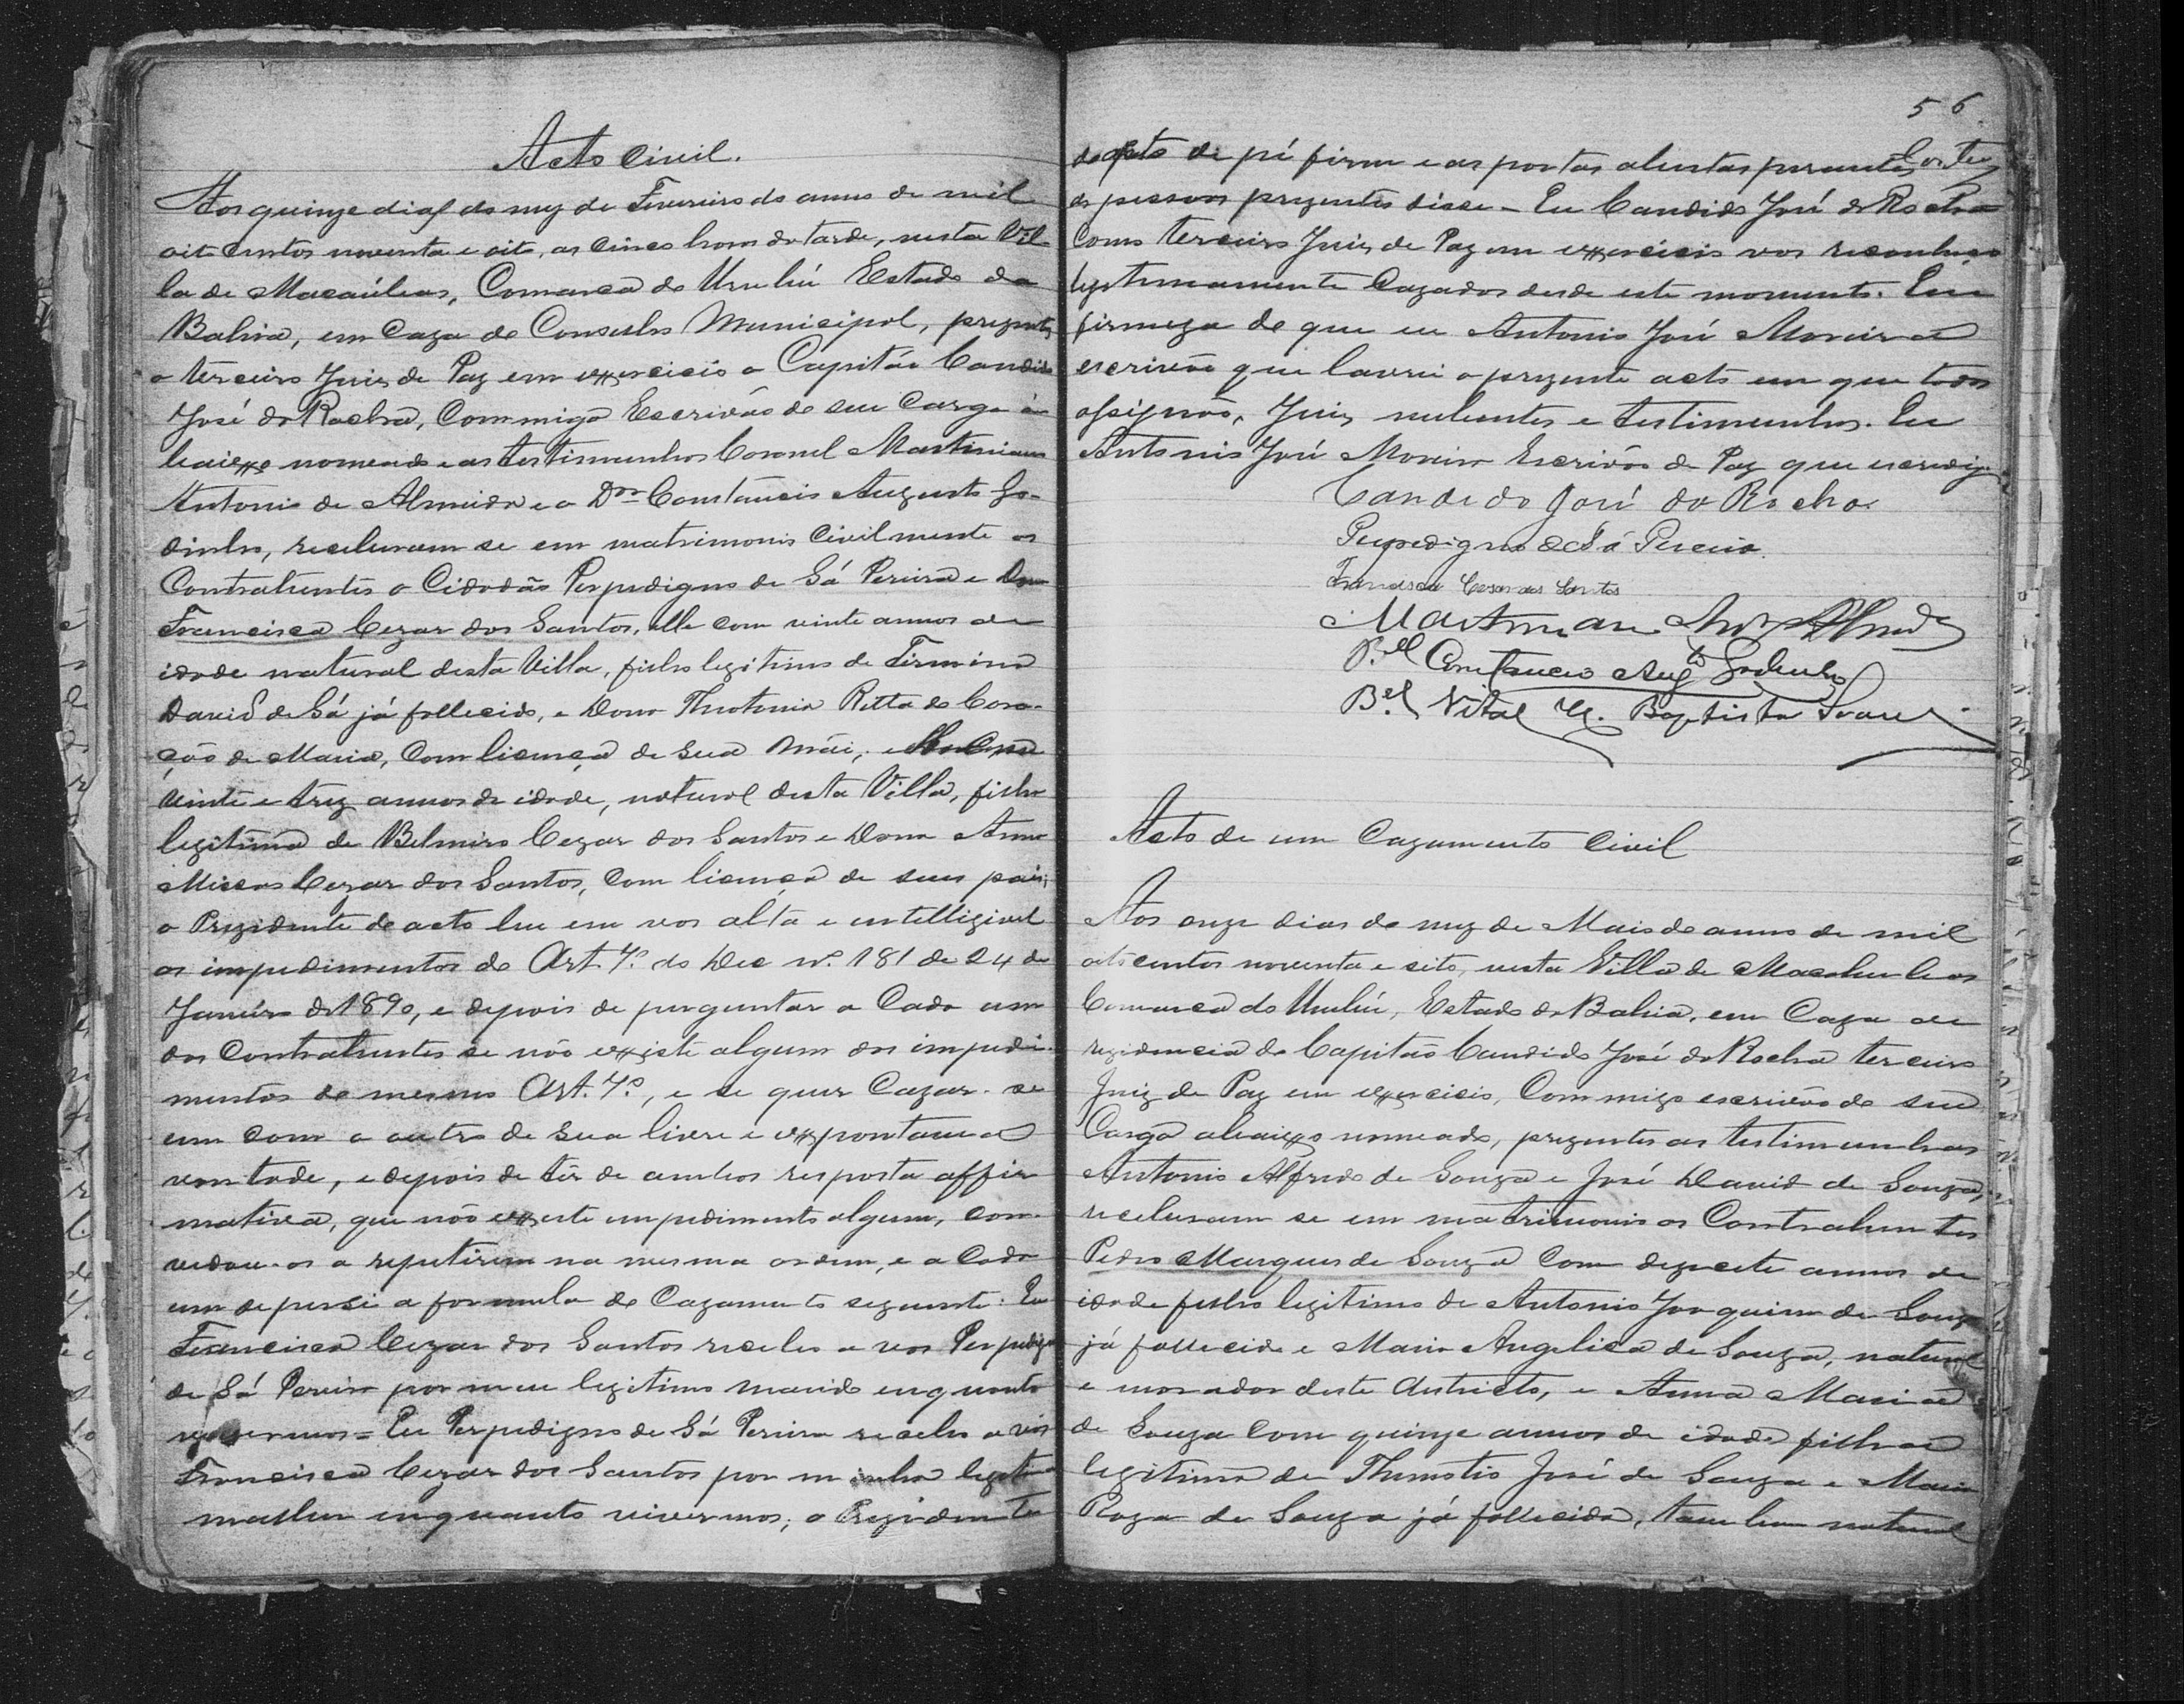 Acto Civil.
Aos quinze dias do mez de Fevereiro do anno de mil
oito centos noventa e oito, as cinco horas da tarde, nesta Vil-
la de Macaúbas, Comarca do Urubú Estado da
Bahia, em Caza do Conselho Municipal, prezentes
o terceiro Juis de Paz em exxercicio o Capitão Candido
José da Rocha, Commigo Escrivão de seu Cargo a-
baixxo nomeado e as testimunhas Coronel Martiniano
Antonio de Almeida e o Dor Constancio Augusto Go-
dinho, receberam se em matrimonio Civilmente os
Contrahentes o Cidadão Perpedigno de Sá Pereira e Dona
Francisca Cezar dos Santos, elle com vinte annos de
idade natural desta Villa, filho legitimo de Firmino
David de Sá já fallecido, e Dona Theotonia Ritta do Cora-
ção de Maria, Com licença de sua Mãi, e
vinte e trez annos de idade, natural desta Villa, filha
legitima de Belmiro Cezar dos Santos e Dona Anna
Cezar dos Santos, Com licença de seus pais,
o Prezidente do acto leu em vos alta e intelligivel
os impedimentos do Art. 7.º do Dec nº. 181 de 24 de
Janeiro de 1890, e depois de perguntar a Cada um
dos Contrahentes se não exxiste algum dos impedi-
mentos do mesmo Art. 7.º, e se quer Cazar-se
um com o outro de sua livre e exxpontanea
vontade, e depois de ter de ambos resposta affir-
mativa, que não exxiste impedimento algum, con-
vidou-os a repetirem na mesma ordem, e a Cada
um de per si a formula do Cazamento seguinte: Eu
Francisca Cezar dos Santos recebo a vos Perpedigno
de Sá Pereira por meu legitimo marido enquanto
vivermos = Eu Perpedigno de Sá Pereira recebo a vós
Francisca Cezar dos Santos por minha legitima
mulher enquanto vivermos; o Prezidente
56
do acto de pé firme e as portas abertas perante
as pessoas prezentes disse - Eu Candido José da Rocha
Como terceiro Juis de Paz em exxercicio vos reconheço
legitimamente Cazados desde este momento. Em
firmeza do que eu Antonio José Moreira
escrivão que lavrei o prezente acto em que todos
assignão, Juis, nubentes e testimunhas. Eu
Antonio José Moreira Escrivão de Paz que escrevi
Candido José da Rocha.
Perpedigno de Sá Pereira.
Francisca Cesar dos Santos
Martiniano Antº Almeida
B.el Constancio Augto Godinho
B.el Vital H. Baptista Soares
Acto de um Cazamento Civil
Aos onze dias do mez de Maio do anno de mil
oitocentos noventa e oito, nesta Villa de Macahubas
Comarca do Urubú, Estado da Bahia, em Caza de
rezidencia do Capitão Candido José da Rocha terceiro
Juiz de Paz em exxercicio, Commigo escrivão de seu
Cargo abaixxo nomeado, prezentes as testimunhas
Antonio Alfredo de Souza e José David de Souza,
receberam se em matrimonio os Contrahentes
Pedro Marques de Souza Com dezesete annos de
idade filho legitimo de Antonio Joaquim de Souza
já fallecido e Maria Angelica de Souza, natural
e morador deste districto, e Anna Maria
de Souza Com quinze annos de idade filha
legitima de Themotio José de Souza e Maria
Roza de Souza já fallecida, tambem natural